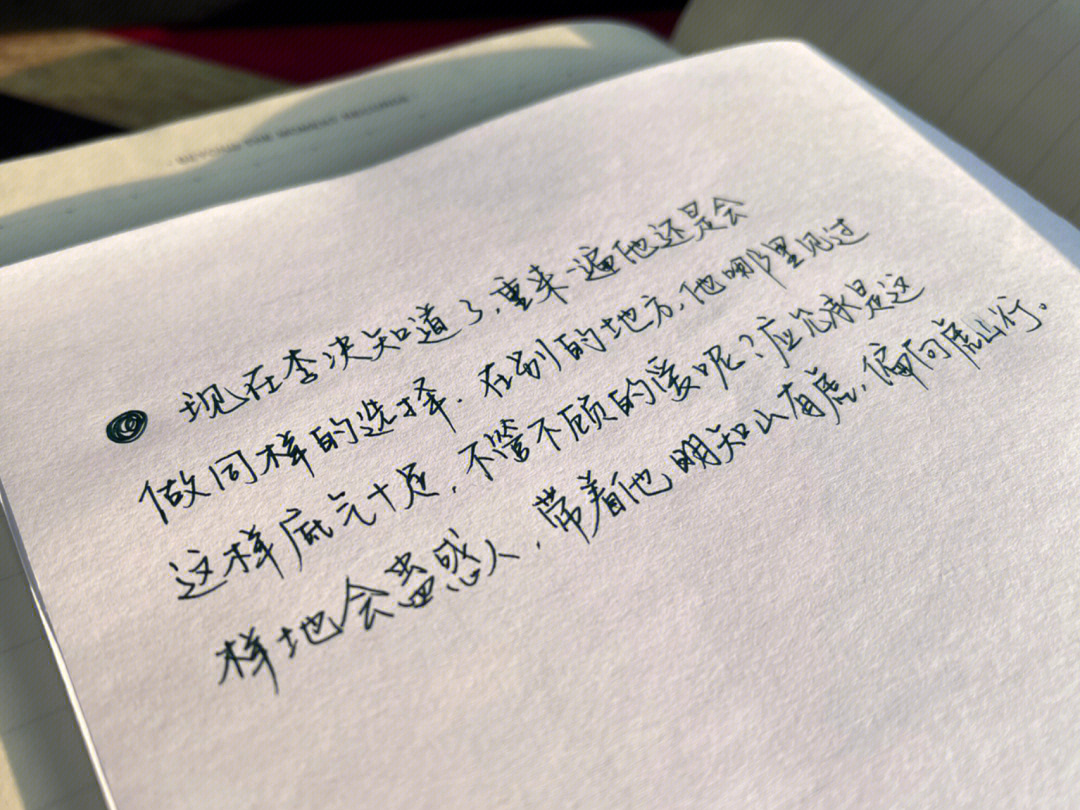 现在李决知道了，重来一遍他还是会
做同样的选择。在别的地方，他哪里见过
这样底气十足，不管不顾的爱呢？应允承是这
样地会蛊惑人，带着他明知山有虎，偏向虎山行。